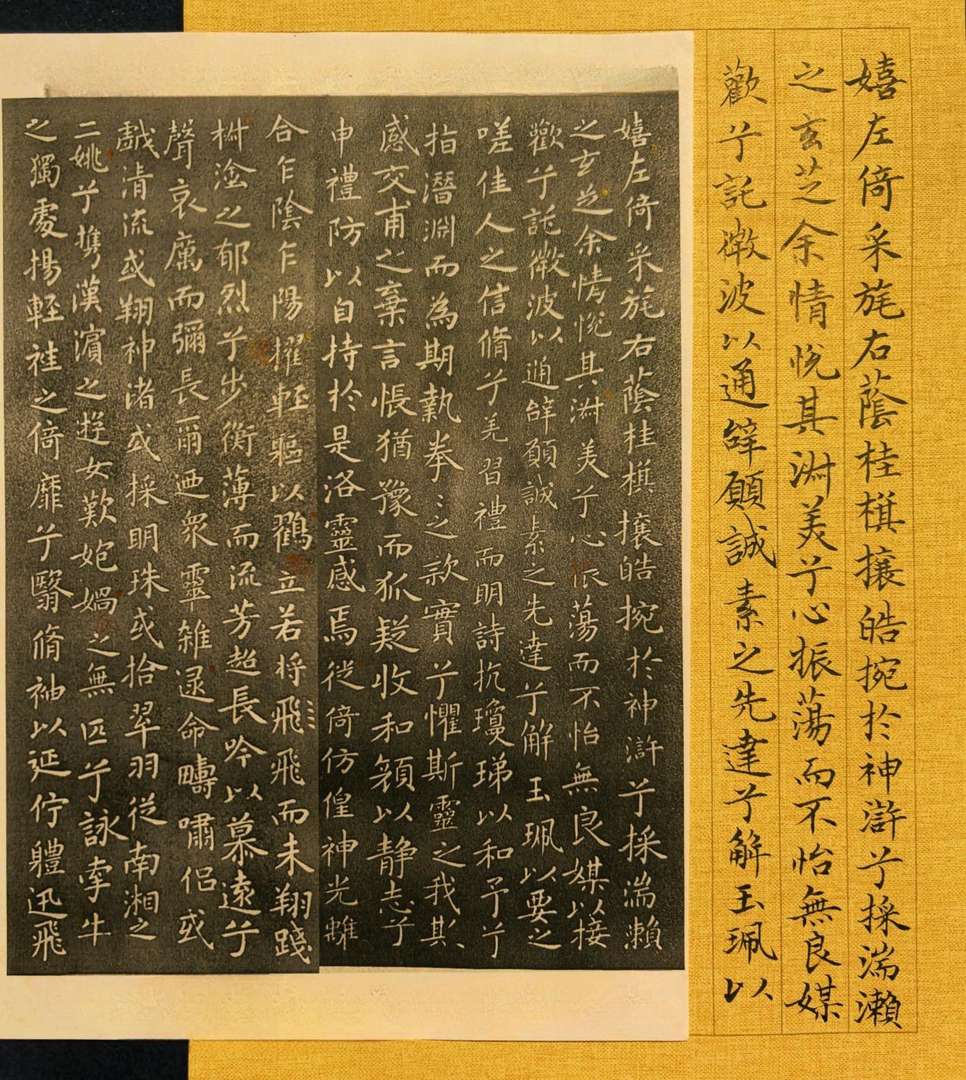 嬉左倚采旄右蔭桂棋攘皓捥於神滸兮採湍瀨
之玄芝余情悅其淑美兮心振蕩而不怡無良媒
歡兮託微波以通辭願誠素之先達兮解玉珮以
嬉左倚采旄右蔭桂棋攘皓捥於神滸兮採湍瀨
之玄芝余情悅其淑美兮心振蕩而不怡無良媒以接
歡兮託微波以通辭願誠素之先達兮解玉珮以要之
嗟佳人之信脩兮羌習禮而明詩抗瓊珶以和予兮
指潛淵而為期執拳々之款實兮懼斯靈之我欺
感交甫之棄言悵猶豫而狐疑收和顏以静志兮
申禮防以自持於是洛靈感焉徙倚仿偟神光離
合乍陰乍陽擢輕軀以鶴立若将飛飛而未翔踐
椒塗之郁烈兮步衡薄而流芳超長吟以慕遠兮
聲哀厲而彌長爾迺衆靈雜逯命疇嘯侣或
戲清流或翔神渚或採明珠或拾翠羽從南湘之
二姚兮攜漢濱之遊女歎匏媧之無匹兮詠牽牛
之獨處揚輕袿之倚靡兮翳脩袖以延佇體迅飛